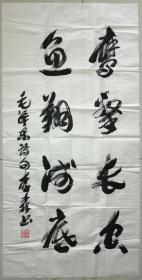 鹰擊长空
鱼翔浅底
毛泽东诗句